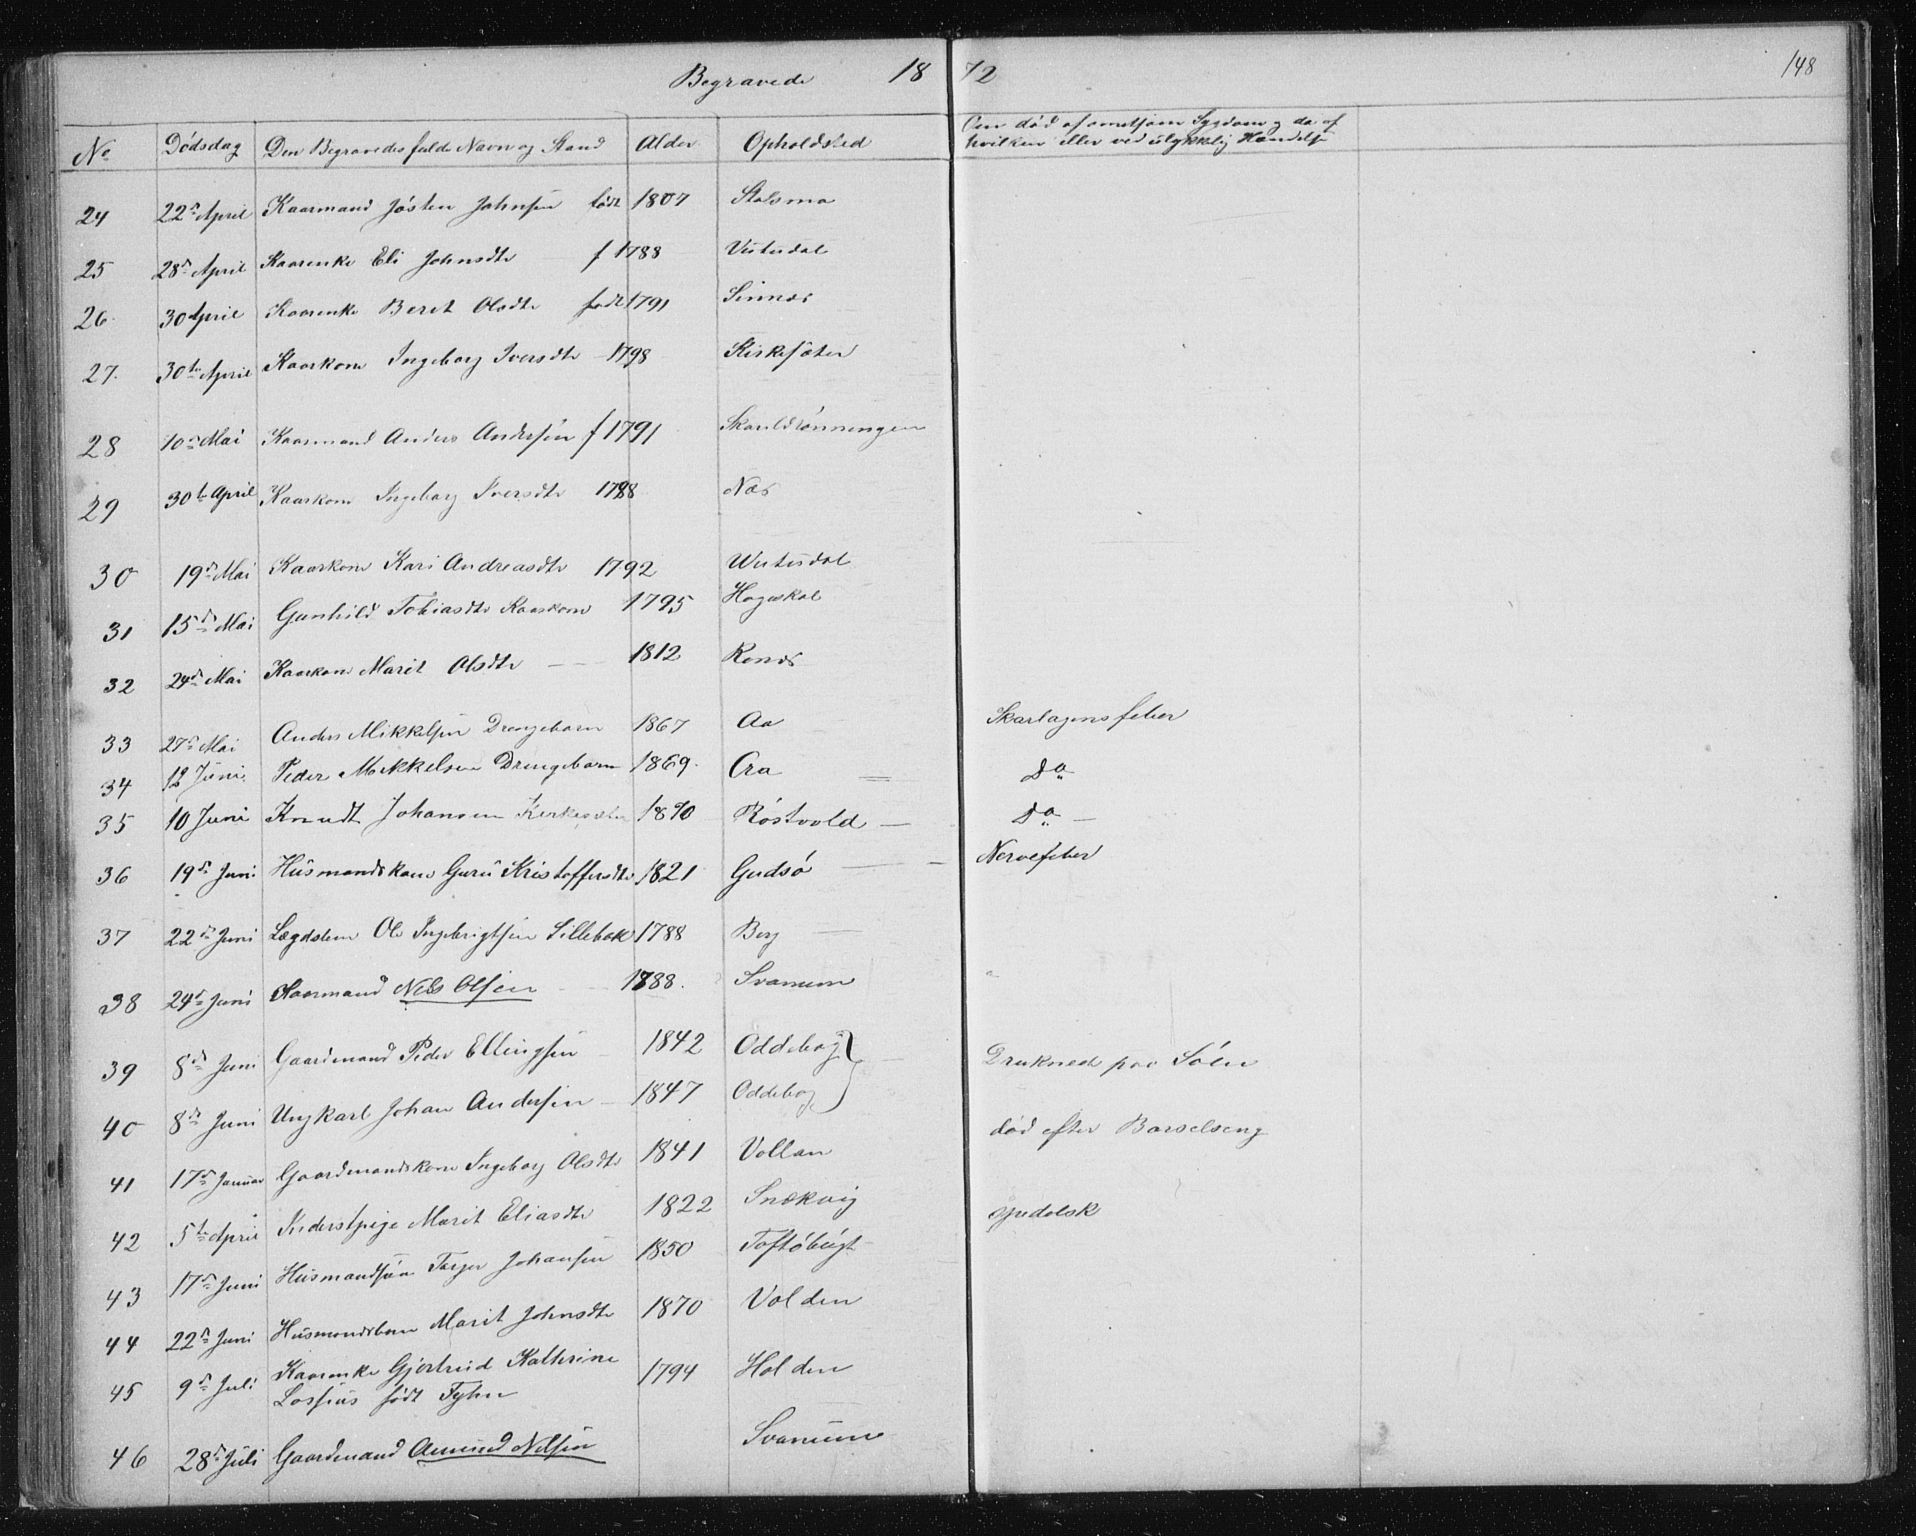 Begravede 1872 148
No Dødsdag Den Begravedes fulde Navn og Stand Alder Opholdsted Om død af smitsom Sygdom og da af
hvilken eller ved ulykkelig Hændelse
24 22de April Kaarmand Jösten Johnsen født 1807 Stolsmo
25 28de April Kaarenke Eli Johnsdtr f 1788 Vestesdal
26 30 April Kaarenke Beret Olsdtr født 1791 Sinnæs
27. 30te April Kaarkone Ingeborg Iversdtr 1798 Kirkesæter
28 10de Mai Kaarmand Anders Andersen f 1791 Skarildrönningen
29 30te April Kaarkone Ingeborg Iversdtr 1788 Næs
30 19de Mai Kaarkone Kari Andreasdtr 1792 Westesdal
31 15de Mai Gunhild Tobiasdtr Kaarkone 1795 Hageskal
32 24de Mai Kaarkone Marit Olsdtr 1812 Ronæs
33 27de Mai Anders Mikkelsen Drengebarn 1867 Aa Skarlagensfeber
34 12 Juni Peder Mikkelsen Drengebarn 1869. Aa Do
35 10 Juni Knudt Johansen Kirkesæter 1870 Röstvold Do
36 19de Juni Husmandskone Guru Kristoffersdtr 1821 Gudsö Nervefeber
37 22de Juni Lægdslem Ole Ingebrigtsen Sillebak 1788 Berg
38 24de Juni Kaarmand Nels Olsen 1788. Svanum
39 8de Juni Gaardmand Peder Ellingsen 1842 Oddebog } Druknet paa Söen
40 8de Juni Ungkarl Johan Andersen 1847 Oddebog
41 17de Januar Gaardmandskone Ingeborg Olsdtr 1841 Vollan död efter Barselseng
42 5te April Inderstpige Marit Eliasdtr 1822 Snekvig spedalsk
43 17de Juni Husmandsön Torger Johansen 1850 Toftöbugt
44 22de Juni Husmandsbarn Marit Johnsdtr 1870 Volden
45 9de Juli Kaarenke Gjertrud Kathrine 1794 Holden
Lossius født Tyhn
46 28de Juli Gaardmand Amund Nelsen Svanum